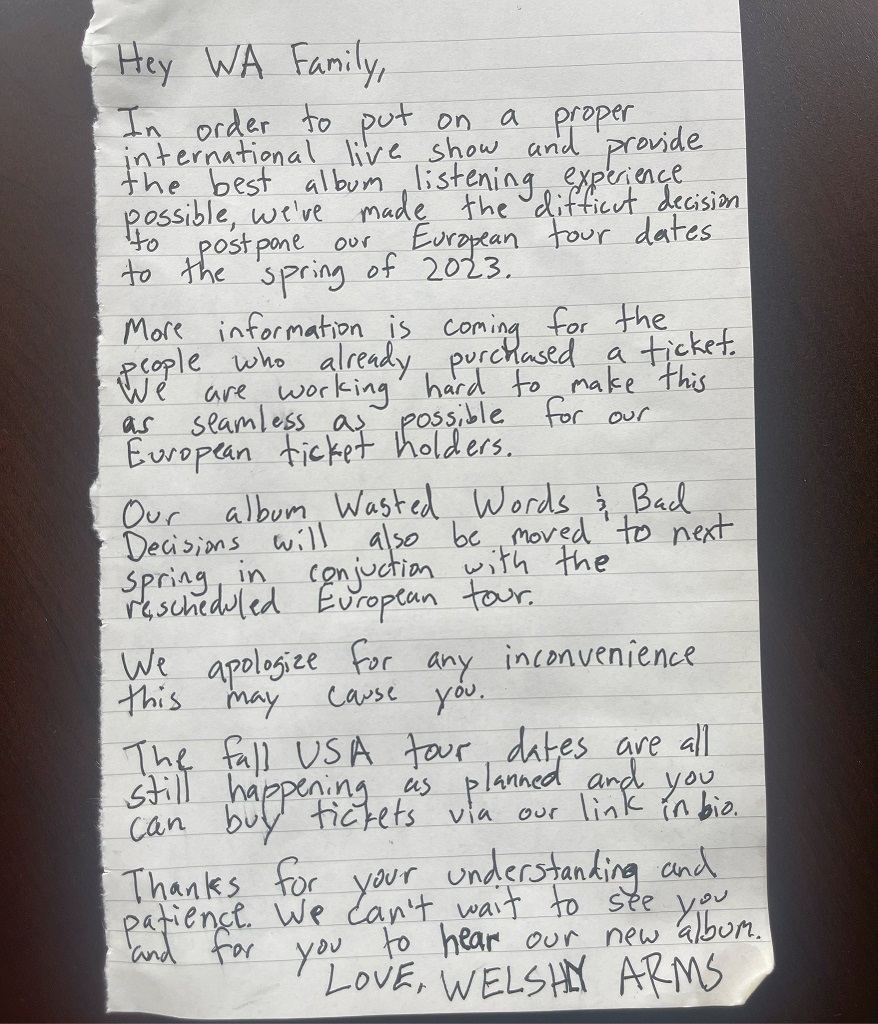 Hey WA Family,
In order to put on a proper
international live show and provide
the best album listening experience
possible, we've made the difficut decision
to postpone our European tour dates
to the spring of 2023.
More information is coming for the
people who already purchased a ticket.
We are working hard to make this
as seamless as possible for our
European ticket holders.
Our album Wasted Words & Bad
Decisions will also be moved to next
spring in conjuction with the
rescheduled European tour.
We apologize for any inconvenience
this may cause you.
The fall USA tour dates are all
still happening as planned and you
can buy tickets via our link in bio.
Thanks for your understanding and
patience. We can't wait to see you
and for you to hear our new album.
LOVE, WELSHLY ARMS